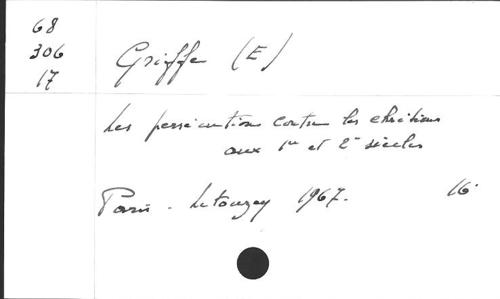 68
306
17
Griffe (E)
Les persécutions contre les chrétiens
aux 1er et 2e siècles
Paris - Letouzey 1967. 16°